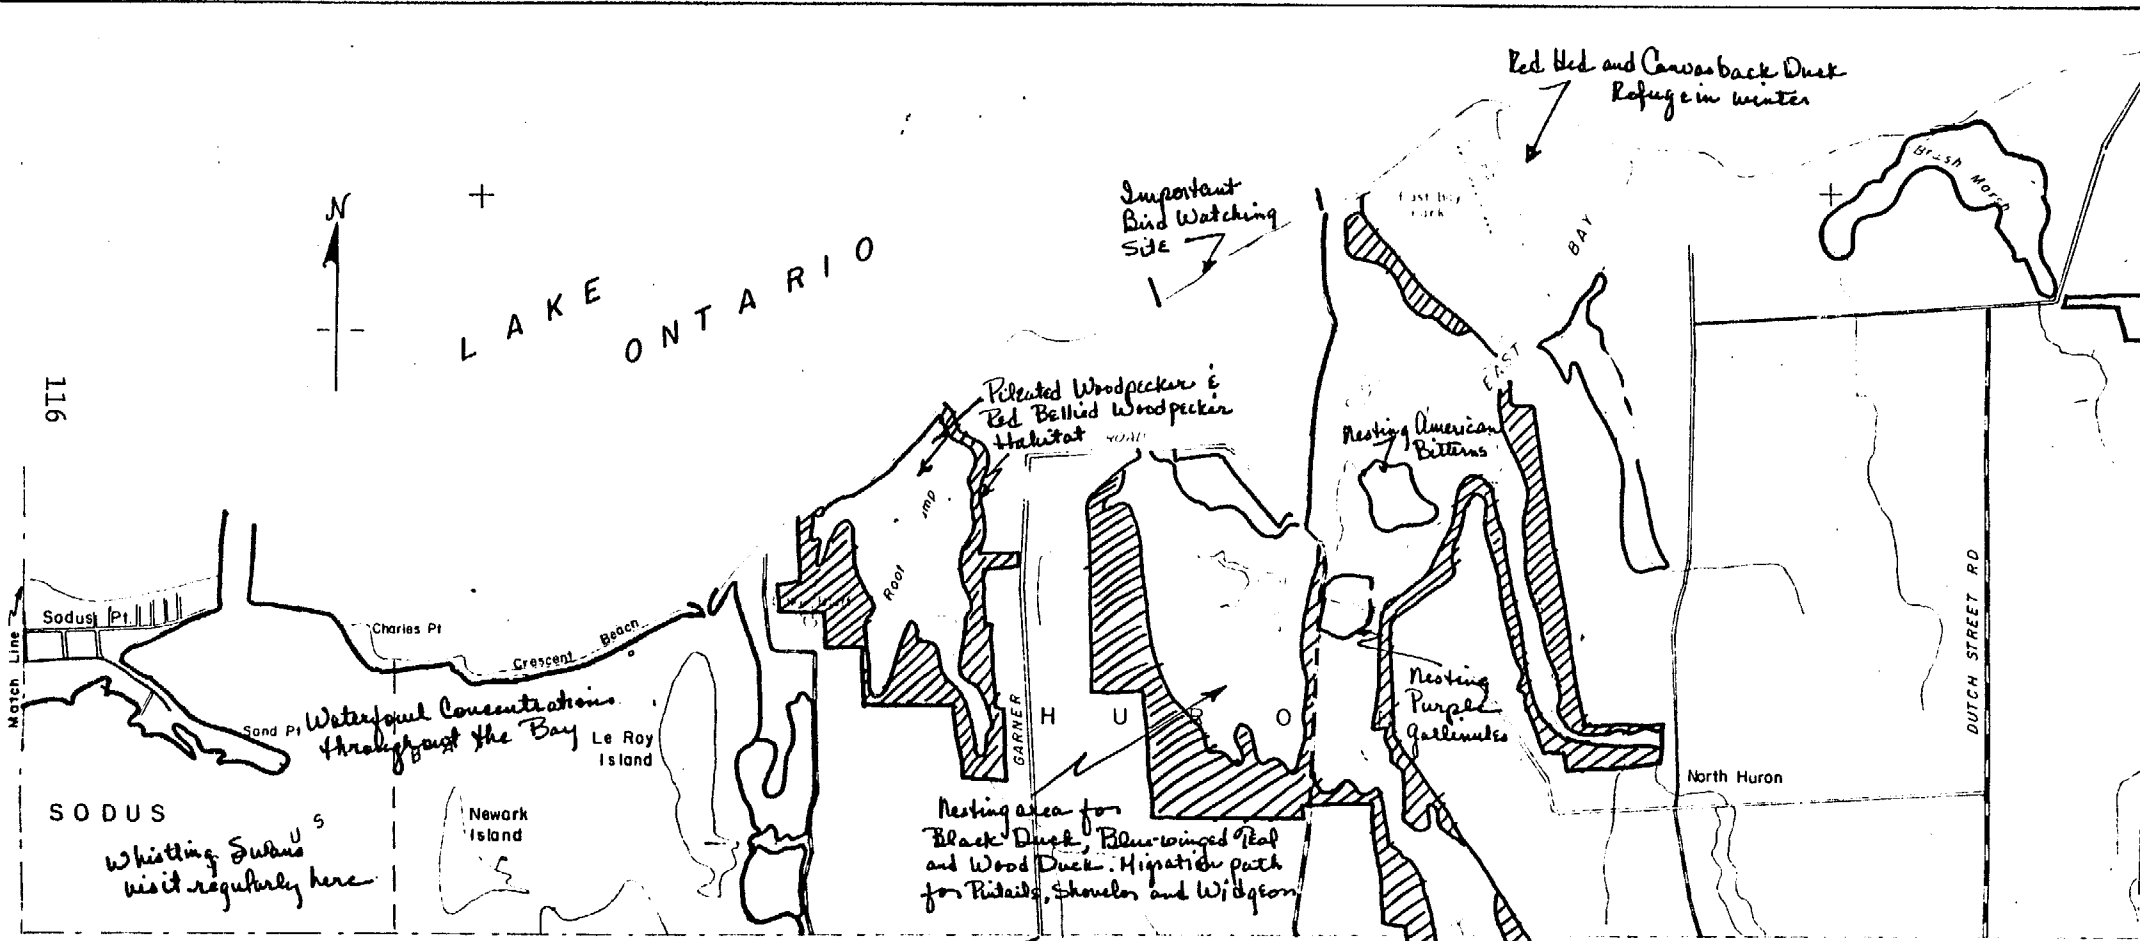 Red Hed and Canvasback Duck
Refuge in winter
Important
Bird Watching
Site
East Bay
Park
Brush Marsh
N
LAKE
ONTARIO
BAY
EAST
116
Pileated Woodpecker &
Red Bellied Woodpecker
Habitat
ROAD
Nesting American
Bitterns
Root
Match Line
Sodus Pt.
Charles Pt
Crescent Beach
Sand Pt
Waterfowl Concentrations
throughout the Bay
Le Roy
Island
GARNER
H U R O
Nesting
Purple
Gallinules
DUTCH STREET RD
North Huron
SODUS
Newark
Island
U S
Whistling Swans
visit regularly here
Nesting area for
Black Duck, Blue-winged Teal
and Wood Duck. Migration path
for Pintails, Shoveler and Widgeon